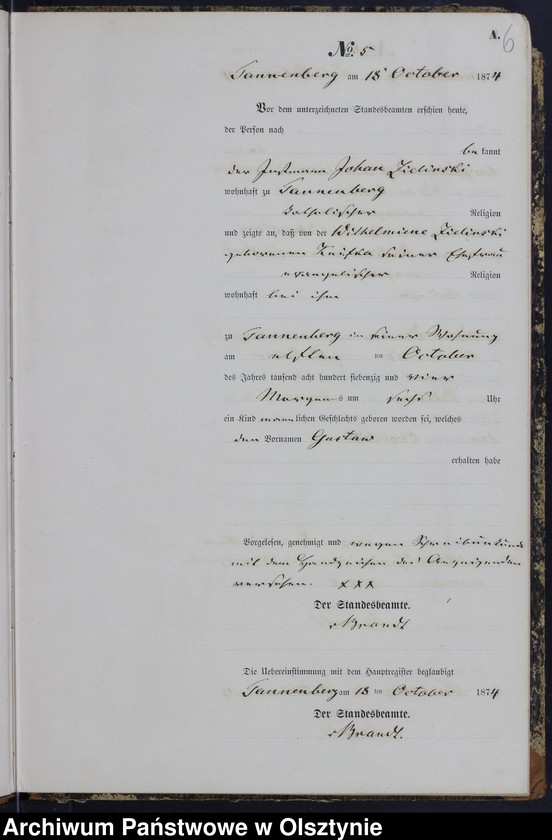 A.
6
No. 5
Tannenberg am 18 October 1874
Vor dem unterzeichneten Standesbeamten erschien heute,
der Person nach
bekannt
der Instmann Johan Zielinski
wohnhaft zu Tannenberg
katholischer Religion
und zeigte an, daß von der Wilhelmiene Zielinski
geborenen seiner Ehefrau
evangelischer Religion
wohnhaft bei ihm
zu Tannenberg in seiner Wohnung
am elften im October
des Jahres tausend acht hundert siebenzig und vier
Morgens um sechs Uhr
ein Kind männlichen Geschlechts geboren worden sei, welches
den Vornamen Gustaw
erhalten habe
Vorgelesen, genehmigt und wegen Schreibunkunde
mit dem Handzeichen des Anzeigenden
versehen. XXX
Der Standesbeamte.
Brandt
Die Uebereinstimmung mit dem Hauptregister beglaubigt
Tannenberg am 18 im October 1874
Der Standesbeamte.
Brandt.
Archiwum Państwowe w Olsztynie